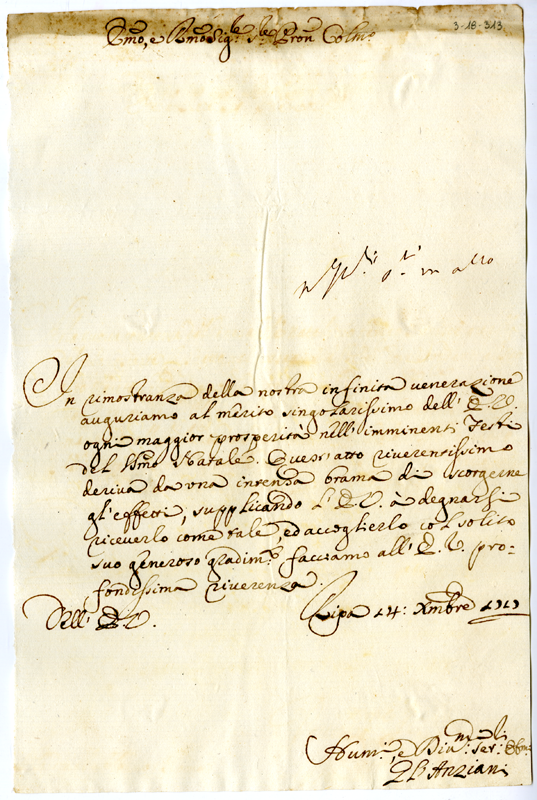 3-18-313
Emo, e Rmo Sig.re Sig.re Pron Colmo
In rimostranza della nostra infinita venerazione
auguriamo al merito singolarissimo dell' E. V.
ogni maggior prosperità nell' imminenti Feste
del Ssmo Natale. Quest' atto riverentissimo
deriva da una intensa brama di scorgerne
gl' effetti, supplicando l' E. V. à degnarsi
riceverlo come tale ed accoglierlo col solito
suo generoso gradim.to facciamo all' E. V. pro-
fondissima riverenza.
Dell' E. V.
Ripa 14: Xmbre
Hum.i e Div.mi Ser.
Gl' Anziani